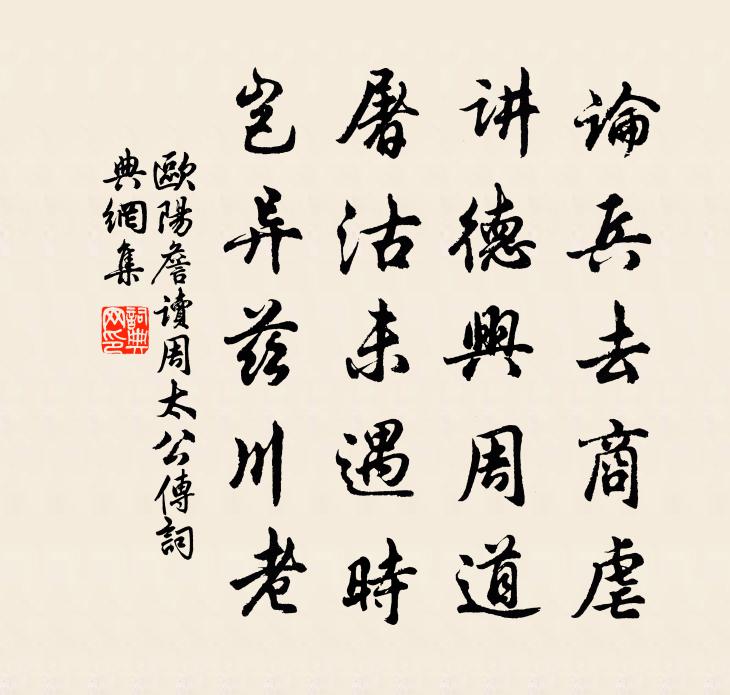 論兵去商虐
讲德興周道
屠沽未遇時
岂异兹川老
歐陽詹讀周太公傳詞
典網集
詞典
网印